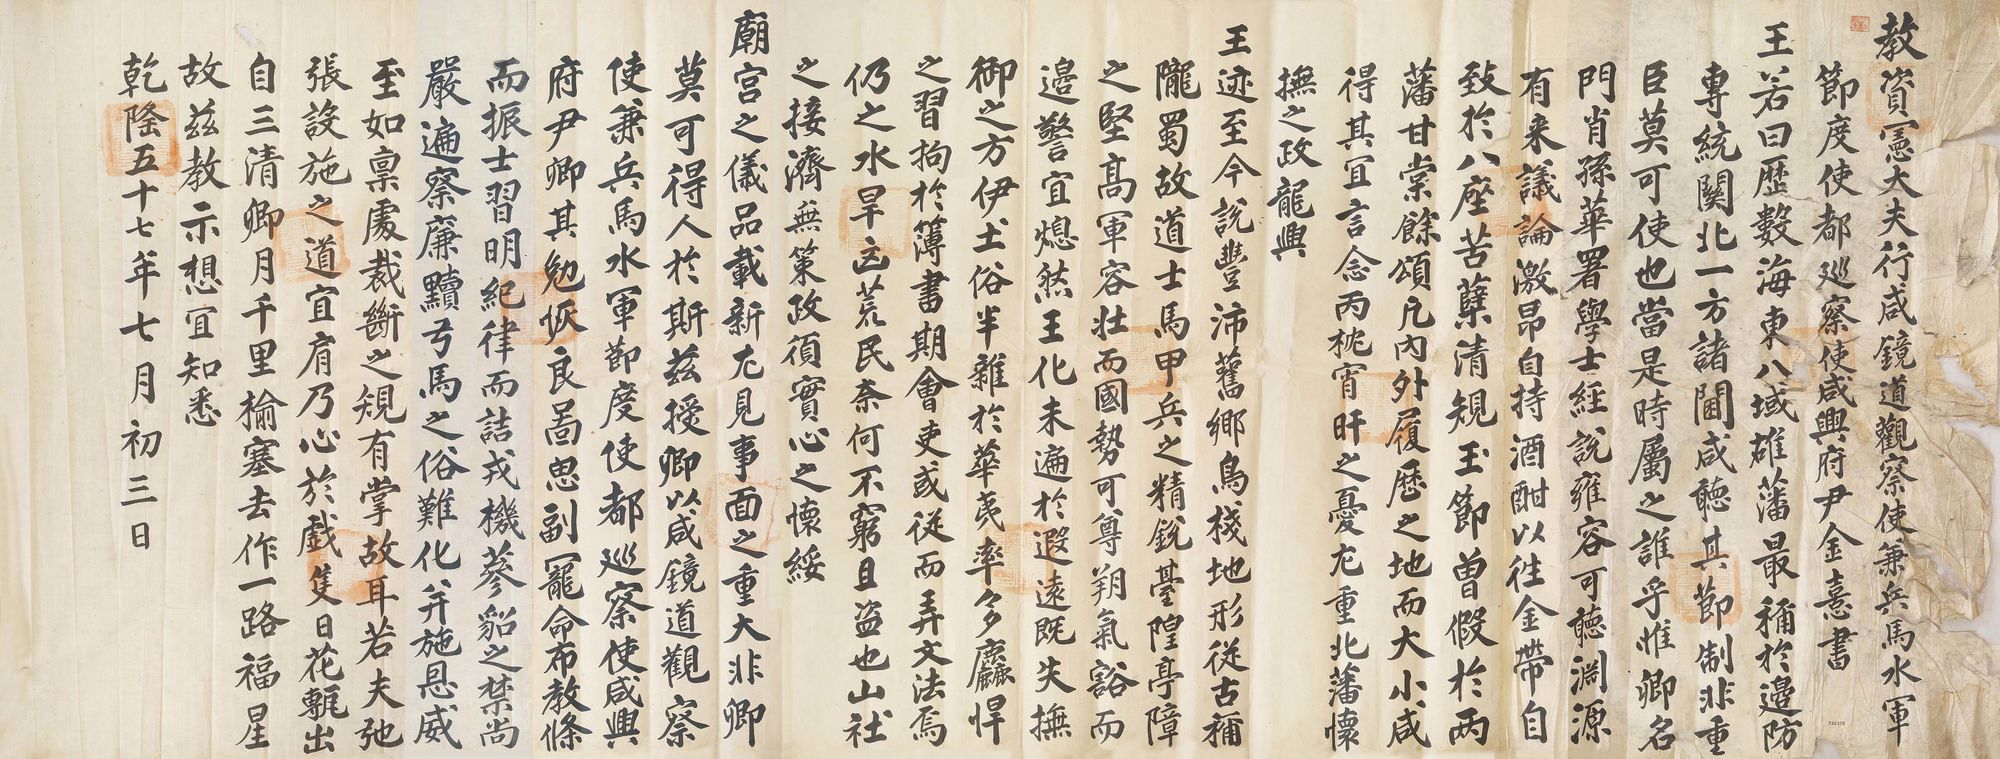 教資憲大夫行咸鏡道觀察使兼兵馬水軍
節度使都巡察使咸興府尹金憙書
王若曰歷數海東八域雄藩最稱於邊防
專統關北一方諸閫咸聽其節制非重
臣莫可使也當是時屬之誰乎惟卿名
門肖孫華署學士經說雍容可聽淵源
有來議論激昂自持酒酣以往金帶自
致於八座苦蘖清規玉節曾假於兩
藩甘棠餘頌凡內外履歷之地而大小咸
得其宜言念丙枕宵旰之憂尤重北藩懷
撫之政龍興
王迹至今說豐沛舊鄉鳥棧地形從古稱
隴蜀故道士馬甲兵之精銳臺隍亭障
之堅高軍容壯而國勢可尊朔氣豁而
邊警宜熄然王化未遍於遐遠既失撫
御之方伊土俗半雜於華夷率多麤悍
之習拘於簿書期會吏或從而弄文法焉
仍之水旱凶荒民奈何不窮且盜也山社
之接濟無策政須實心之懷綏
廟宮之儀品載新尤見事面之重大非卿
莫可得人於斯茲授卿以咸鏡道觀察
使兼兵馬水軍節度使都巡察使咸興
府尹卿其勉恢良啚思副寵命布教條
而振士習明紀律而詰戎機蔘貂之禁尚
嚴遍察廉黷弓馬之俗難化并施恩威
至如稟處裁斷之規有掌故耳若夫弛
張設施之道宜有乃心於戲隻日花甎出
自三清卿月千里榆塞去作一路福星
故茲教示想宜知悉
乾隆五十七年七月初三日